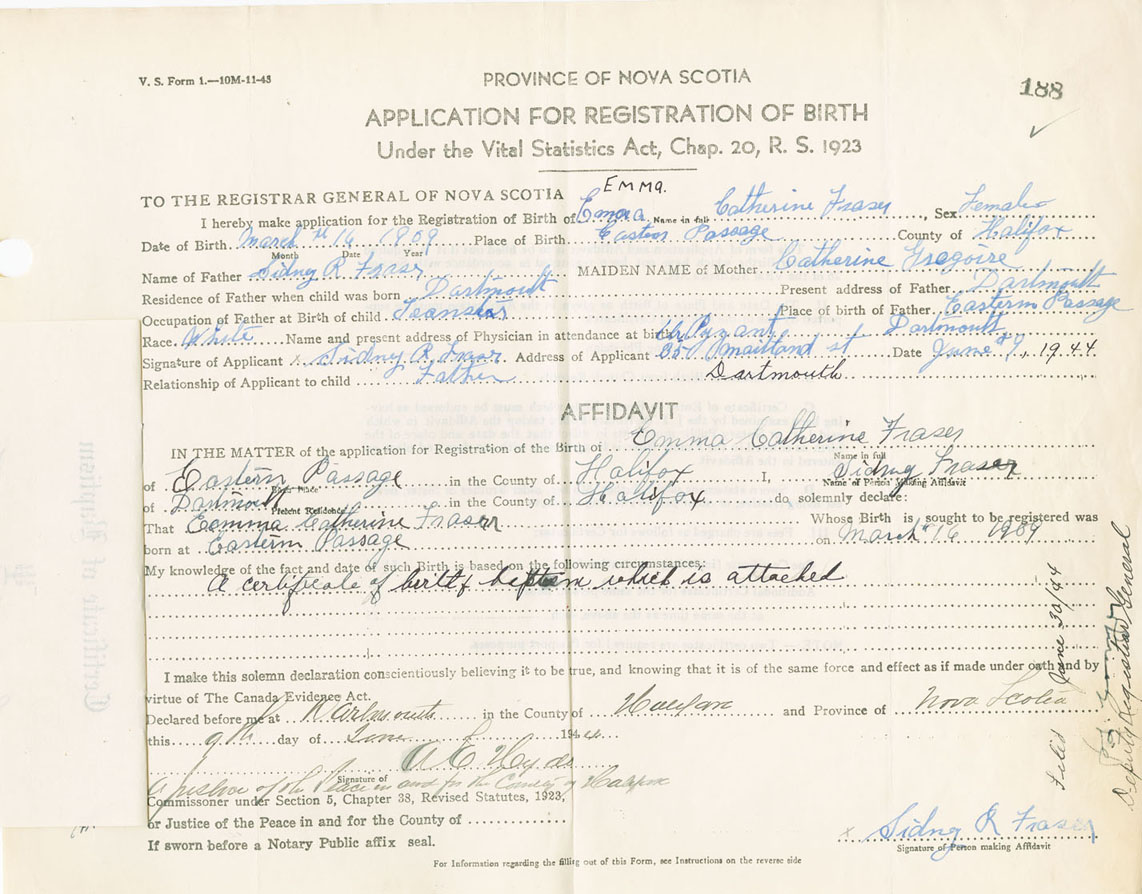 V. S. Form 1.—10M-11-43
PROVINCE OF NOVA SCOTIA
188
APPLICATION FOR REGISTRATION OF BIRTH
Under the Vital Statistics Act, Chap. 20, R. S. 1923
TO THE REGISTRAR GENERAL OF NOVA SCOTIA
Emma.
I hereby make application for the Registration of Birth of Emma Catherine Fraser, Sex Female
Name in full
Date of Birth March 16 1909 Place of Birth Eastern Passage County of Halifax
Month Date Year
Name of Father Sidney R Fraser MAIDEN NAME of Mother Catherine Gregoire
Residence of Father when child was born Dartmouth Present address of Father Dartmouth
Occupation of Father at Birth of child Place of birth of Father Eastern Passage
Race White Name and present address of Physician in attendance at birth Dartmouth
Signature of Applicant x Sidney R Fraser. Address of Applicant Maitland st Date June 1944
Relationship of Applicant to child Father Dartmouth
AFFIDAVIT
IN THE MATTER of the application for Registration of the Birth of Emma Catherine Fraser
Name in full
of Eastern Passage in the County of Halifax I, Sidney Fraser
Birth Place Name of Person Making Affidavit
of Dartmouth in the County of Halifax do solemnly declare:
Present Residence
That Eemma Catherine Fraser Whose Birth is sought to be registered was
born at Eastern Passage on March 16 1909
My knowledge of the fact and date of such Birth is based on the following circumstances:
A certificate of birth & baptism which is attached
I make this solemn declaration conscientiously believing it to be true, and knowing that it is of the same force and effect as if made under oath and by
virtue of The Canada Evidence Act.
Declared before me at Dartmouth in the County of Halifax and Province of Nova Scotia
this 9th day of June 1944
A E
Signature of
a justice of the Peace in and for the County of Halifax
Commissoner under Section 5, Chapter 38, Revised Statutes, 1923,
or Justice of the Peace in and for the County of
If sworn before a Notary Public affix seal.
x Sidney R Fraser
Signature of Person making Affidavit
For Information regarding the filling out of this Form, see Instructions on the reverse side
Filed June 30/44
Deputy Registrar General
Certificate of Baptism